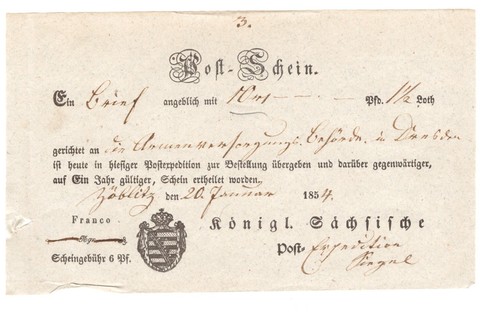 3.
Post-Schein.
Ein Brief angeblich mit Pfd. 1½ Loth
gerichtet an die Armenversorgungs-Behörde in Dresden
ist heute in hiesiger Postexpedition zur Bestellung übergeben und darüber gegenwärtiger,
auf Ein Jahr gültiger, Schein ertheilet worden.
Zöblitz den 20. Januar 1854.
Franco
Königl. Sächsische
Ngr.
Post-Expedition
Scheingebühr 6 Pf.